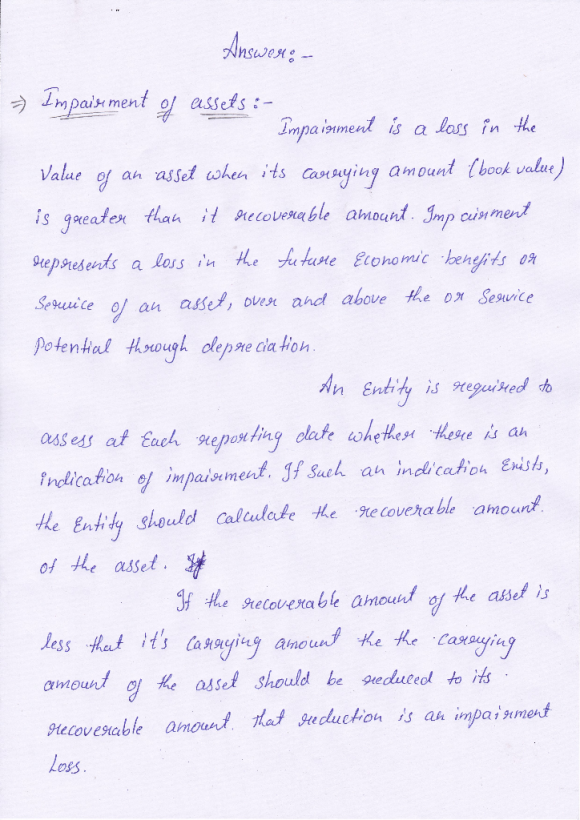 Answer:-
⇒ Impairment of assets :-
Impairment is a loss in the
Value of an asset when its carrying amount (book value)
is greater than it recoverable amount. Impairment
represents a loss in the future Economic benefits or
Service of an asset, over and above the or Service
Potential through depreciation.
An Entity is required to
assess at Each reporting date whether there is an
indication of impairment. If Such an indication Exists,
the Entity should calculate the recoverable amount.
of the asset.
If the recoverable amount of the asset is
less that it's Carrying amount the the carrying
amount of the asset should be reduced to its
recoverable amount. that reduction is an impairment
Loss.